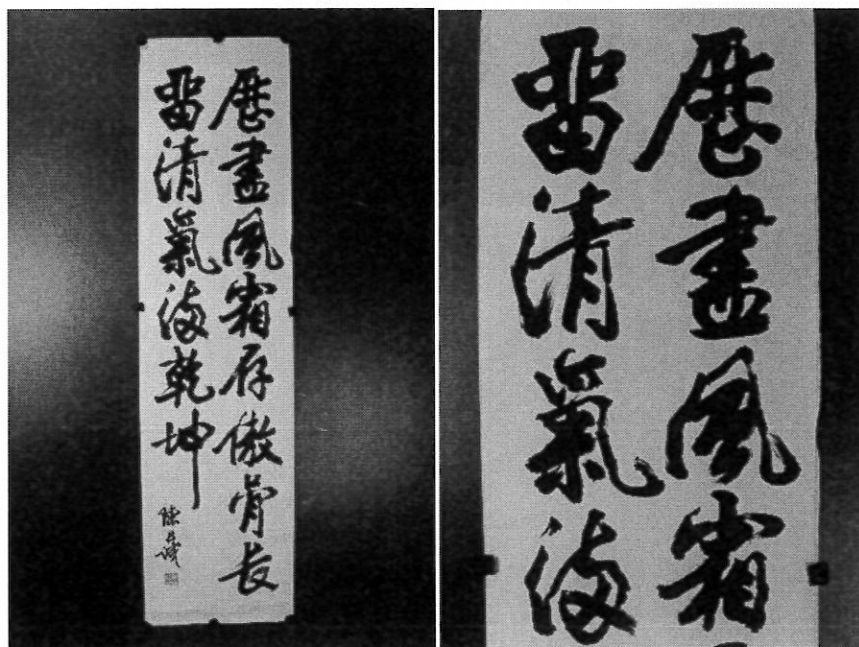 歷盡風霜存傲骨長
留清氣滿乾坤
陳
歷盡風霜
留清氣滿